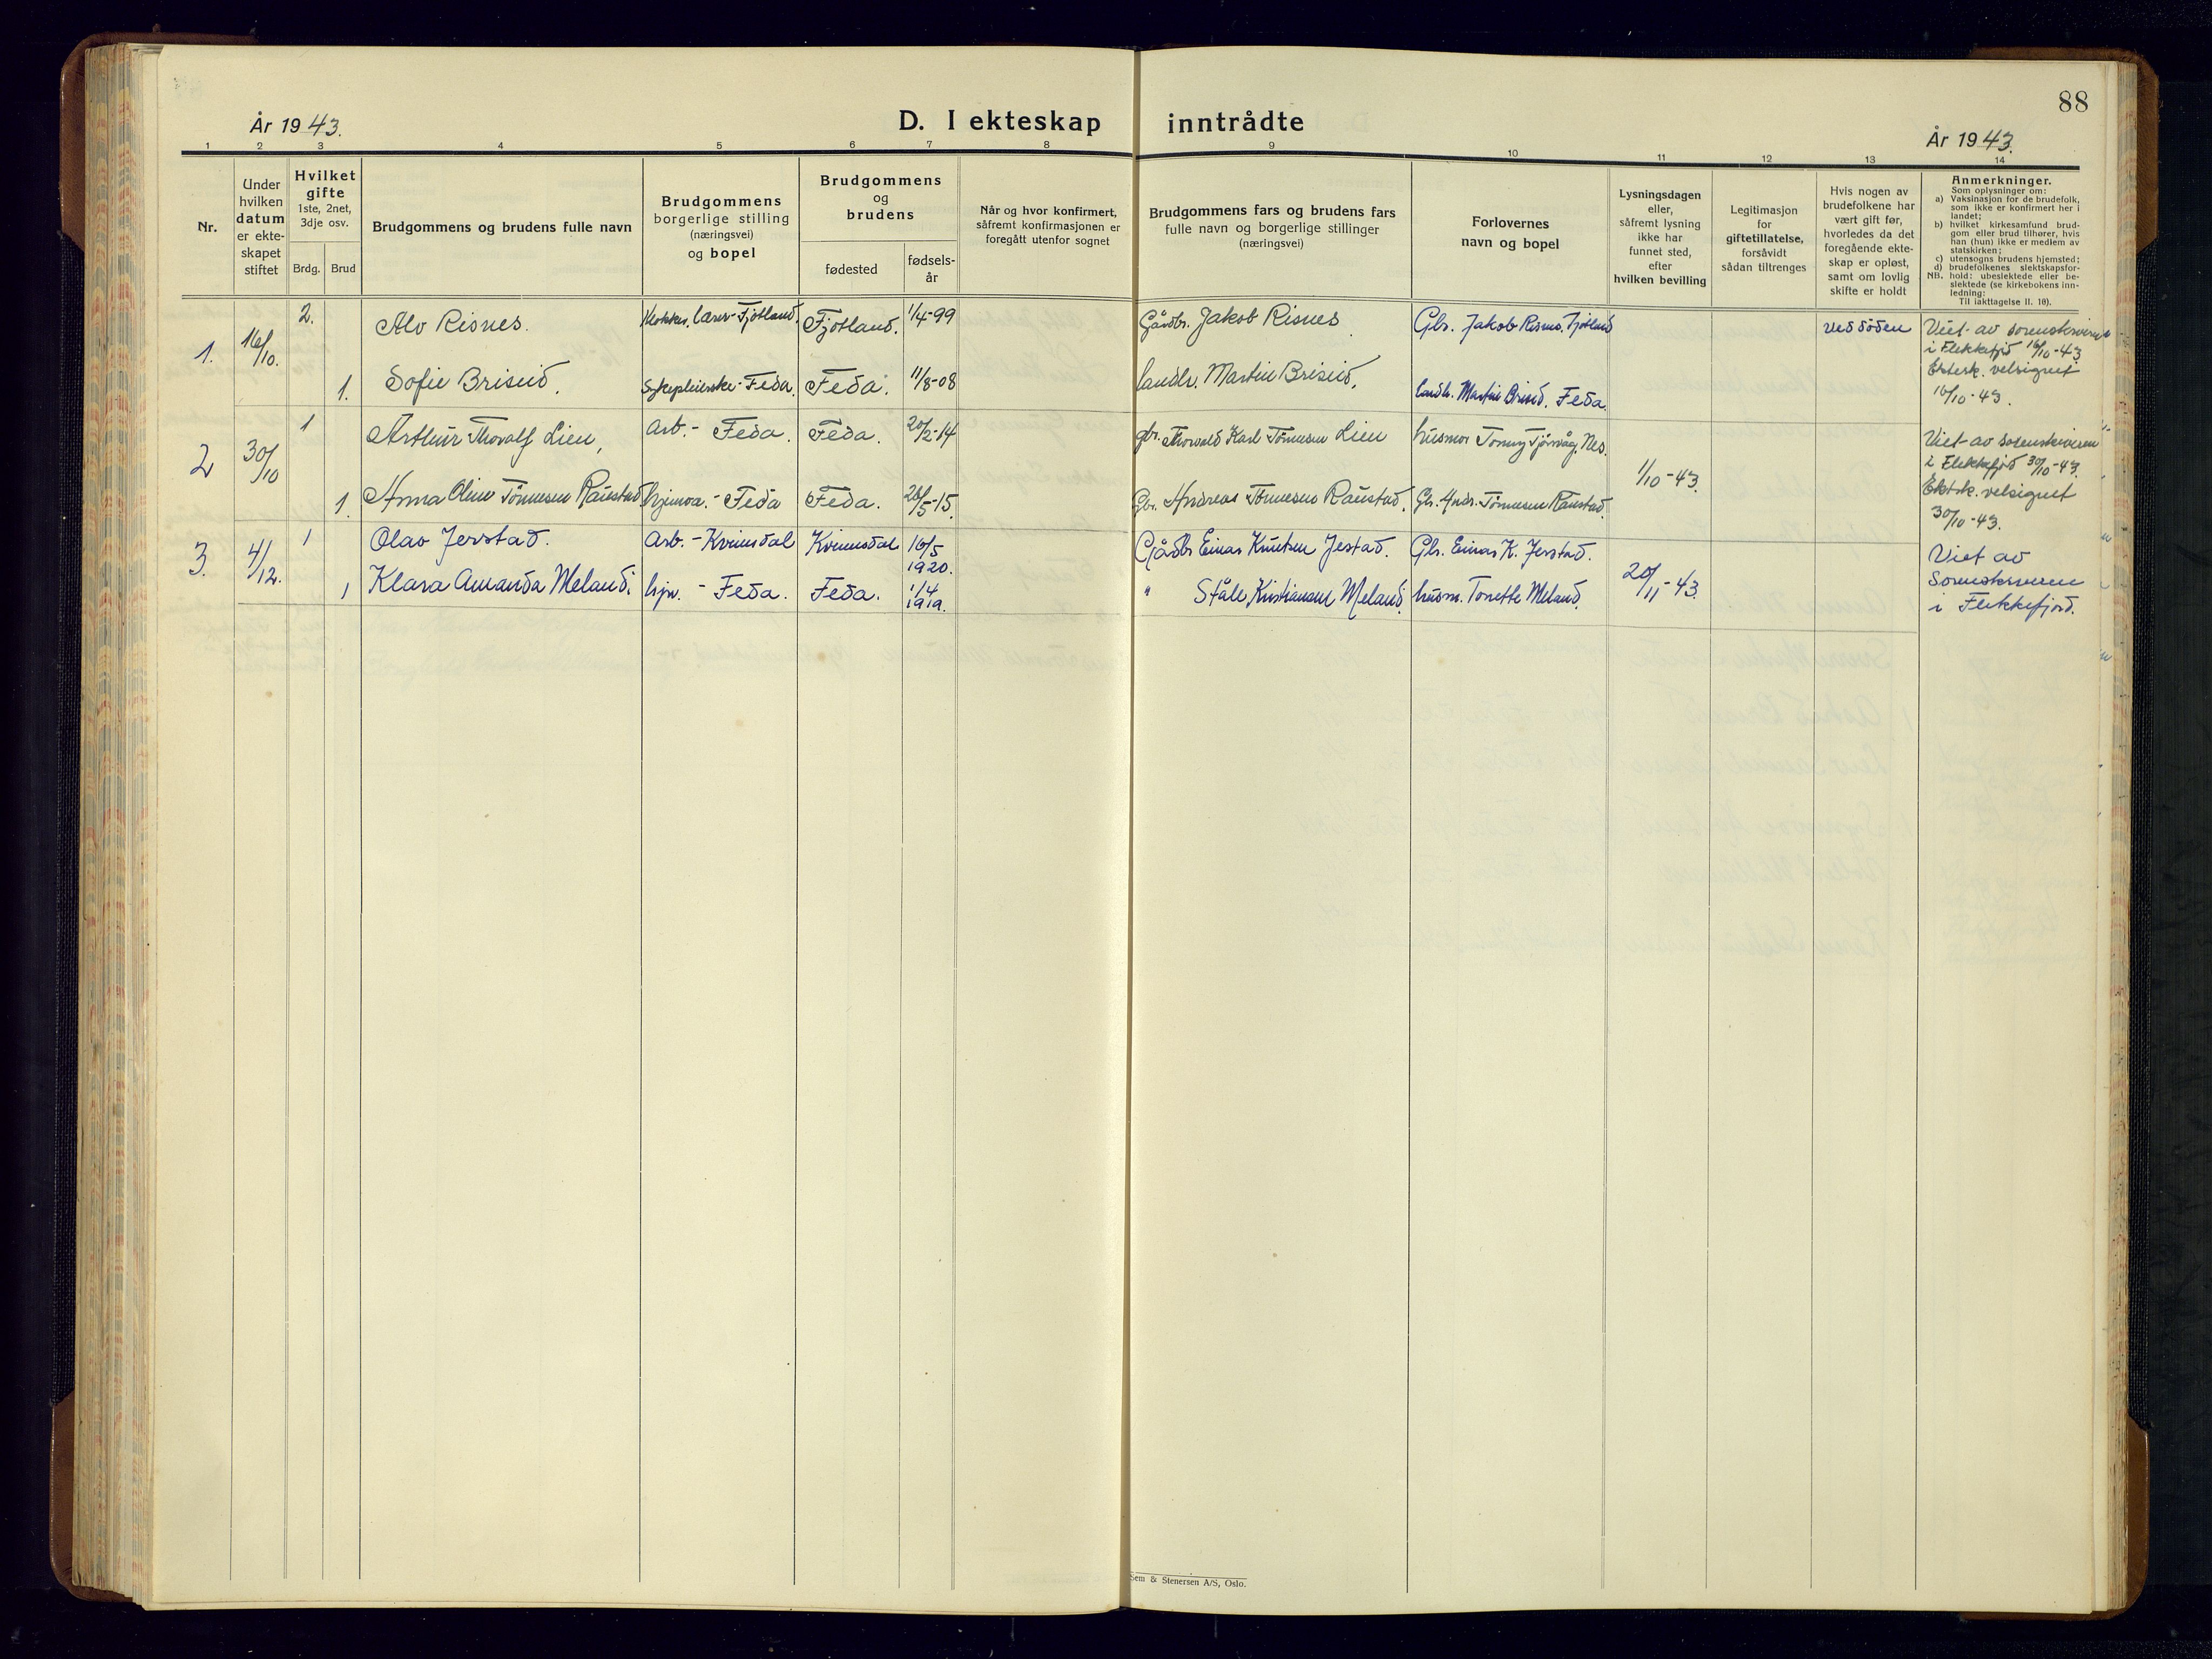 88
År 1943.
D. I ekteskap inntrådte
År 1943.
1 2 3 4 5 6 7 8 9 10 11 12 13 14
Nr.
Under hvilken datum er ekte-skapet stiftet
Hvilket gifte
1ste, 2net, 3dje osv.
Brdg. Brud
Brudgommens og brudens fulle navn
Brudgommens borgerlige stilling (næringsvei) og bopel
Brudgommens og brudens
fødested
fødsels-år
Når og hvor konfirmert, såfremt konfirmasjonen er foregått utenfor sognet
Brudgommens fars og brudens fars fulle navn og borgerlige stillinger (næringsvei)
Forlovernes navn og bopel
Lysningsdagen eller, såfremt lysning ikke har funnet sted, efter hvilken bevilling
Legitimasjon for giftetillatelse, forsåvidt sådan tiltrenges
Hvis nogen av brudefolkene har vært gift før, hvorledes da det foregående ekte-skap er opløst, samt om lovlig skifte er holdt
Anmerkninger.
Som oplysninger om:
a) Vaksinasjon for de brudefolk, som ikke er konfirmert her i landet;
b) hvilket kirkesamfund brud-gom eller brud tilhører, hvis han (hun) ikke er medlem av statskirken;
c) utensogns brudens hjemsted;
d) brudefolkenes slektskapsfor-hold: ubeslektede eller be-slektede (se kirkebokens inn-ledning:
NB.
Til iakttagelse II. 10).
1. 16/10. 2. Alv Risnes. Fjotland. 1/4-99 Gårdbr. Jakob Risnes Gbr. Jakob Risnes. Fjotland ved døden
Viet av sorenskriveren
i Flekkefjd 16/10-43
Ektesk. velsignet
16/10-43.
1. Sofie Briseid. Sykepleierske-Feda. Feda. 11/8-08 landh. Martin Briseid. landh. Martin Briseid. Feda.
2 30/10 1 Arthur Thoralf Lien, Arb. - Feda. Feda. 20/2-14 gbr. Thorvald Karl Tönnesen Lien husmor Tonny Tjørsvåg. Nes. 1/10-43.
Viet av sorenskriveren
i Flekkefjd 30/10-43.
Ektsk. velsignet
30/10-43.
1. Anna Oline Tönnesen Raustad hjemva. - Feda Feda. 26/5-15. Gbr. Andreas Tönnesen Raustad. Gbr. Andr. Tönnesen Raustad.
3. 4/12. 1 Olav Jerstad. Arb. - Kvinesdal Kvinesdal 16/5 1920. Gårdbr Einar Knutsen Jestad. Gbr. Einar K. Jerstad. 20/11-43.
Viet av
Sorenskriveren
i Flekkefjord.
1 Klara Amanda Meland. hjv. - Feda. Feda. 1/4 1919. " Ståle Kristiansen Meland. husm. Tonette Meland.
Sem & Stenersen A/S, Oslo.